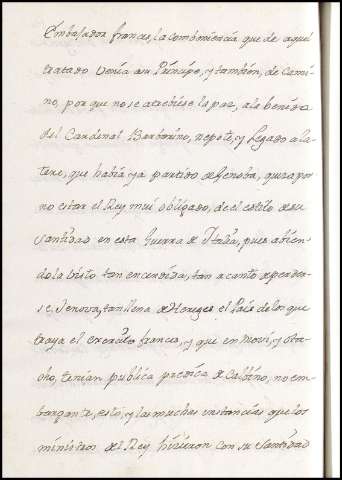 Embaxador frances, la combeniencia que de aquel
tratado venia a su Principe, y tambien, de Cami-
no, por que no se atrebiese la paz, a la benida
del Cardinal Barberino, nepote, y Legado a la-
tere, que habia ya partido de Genoba, quiza por
no estar el Rey mui obligado, de el estilo de su
Santidad en esta Guerra de Italia, pues abien-
dola visto tan encendida, tan a canto de perder-
se, Genova, tan llena de Hereges el Pais de los que
traya el exercito francia, y que en Novi, y otta-
cho, tenian publica predica de Calbino, no em-
bargante, esto, y las muchas instancias que los
ministros del Rey hizieron con su Santidad